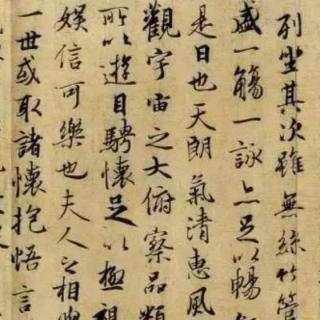 列坐其次雖無絲竹管
盛一觴一詠亦足以暢
是日也天朗氣清惠風
觀宇宙之大俯察品類
所以遊目騁懷足以極視
娛信可樂也夫人之相
一世或取諸懷抱悟言